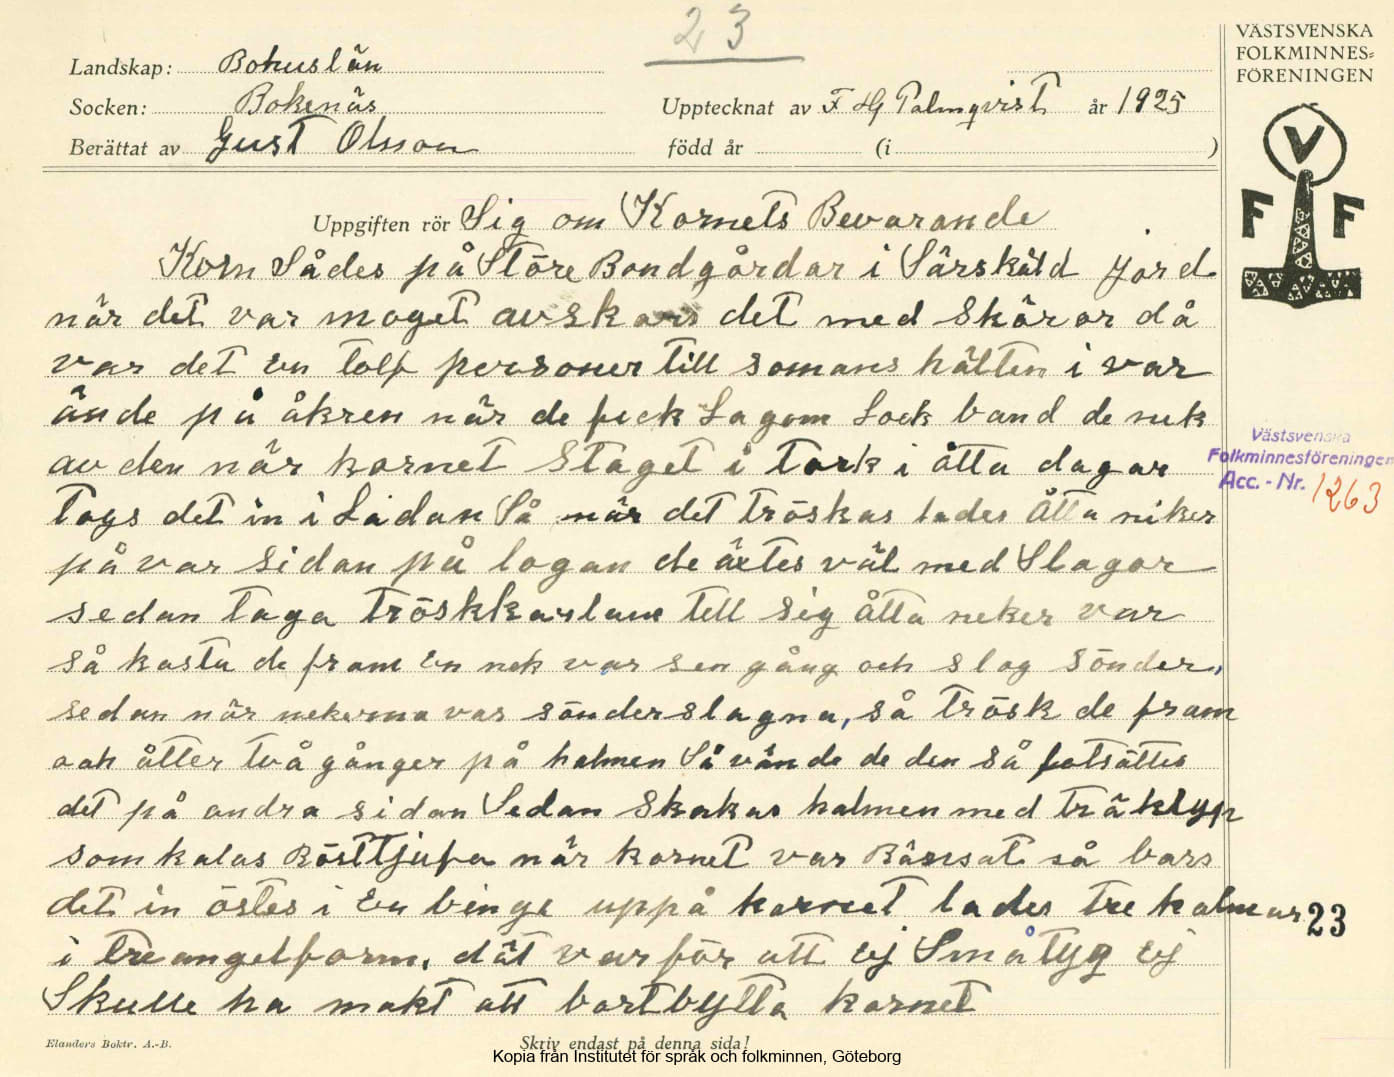 23
VÄSTSVENSKA
FOLKMINNES=
FÖRENINGEN
Landskap: Bohuslän
Socken: Bokenäs
Upptecknat av F H Palmqvist år 1925
Berättat av Gust Olsson
född år (i )
V
F F
Uppgiften rör Sig om Kornets Bevarande
Korn Sådes på Störe Bondgårdar i Särskäld jord
när det var moget avskars det med Skäror då
var det en tolf personer till somans hälten i var
ände på åkren när de feck Lagom Lock band de nek
av den när kornet Staget i tork i åtta dagar
Togs det in i Ladan Så när det tröskas lades Åtta niker
på var sidan på logan de äxtes väl med Slagor
sedan taga tröskkarlane tell sig åtta neker var
så kasta de fram en nek var sen gång och slog sönder,
sedan när nekerna var sönderslagna, så trösk de fram
och åtter två gånger på halmen Så vände de den så fotsättes
det på andra sidan Sedan Skakas halmen med träklyp
som kalas Rösttjufa när kornet var Bänsat så bars
det in östes i en binge uppå kornet lades tre halmar
i treangelform, dät var för att ej Småtyg ej
Skulle ha makt att bortbytta kornet
Västsvenska
Folkminnesföreningen
Acc. - Nr. 1263
23
Elanders Boktr. A.-B.
Skriv endast på denna sida!
Kopia från Institutet för språk och folkminnen, Göteborg